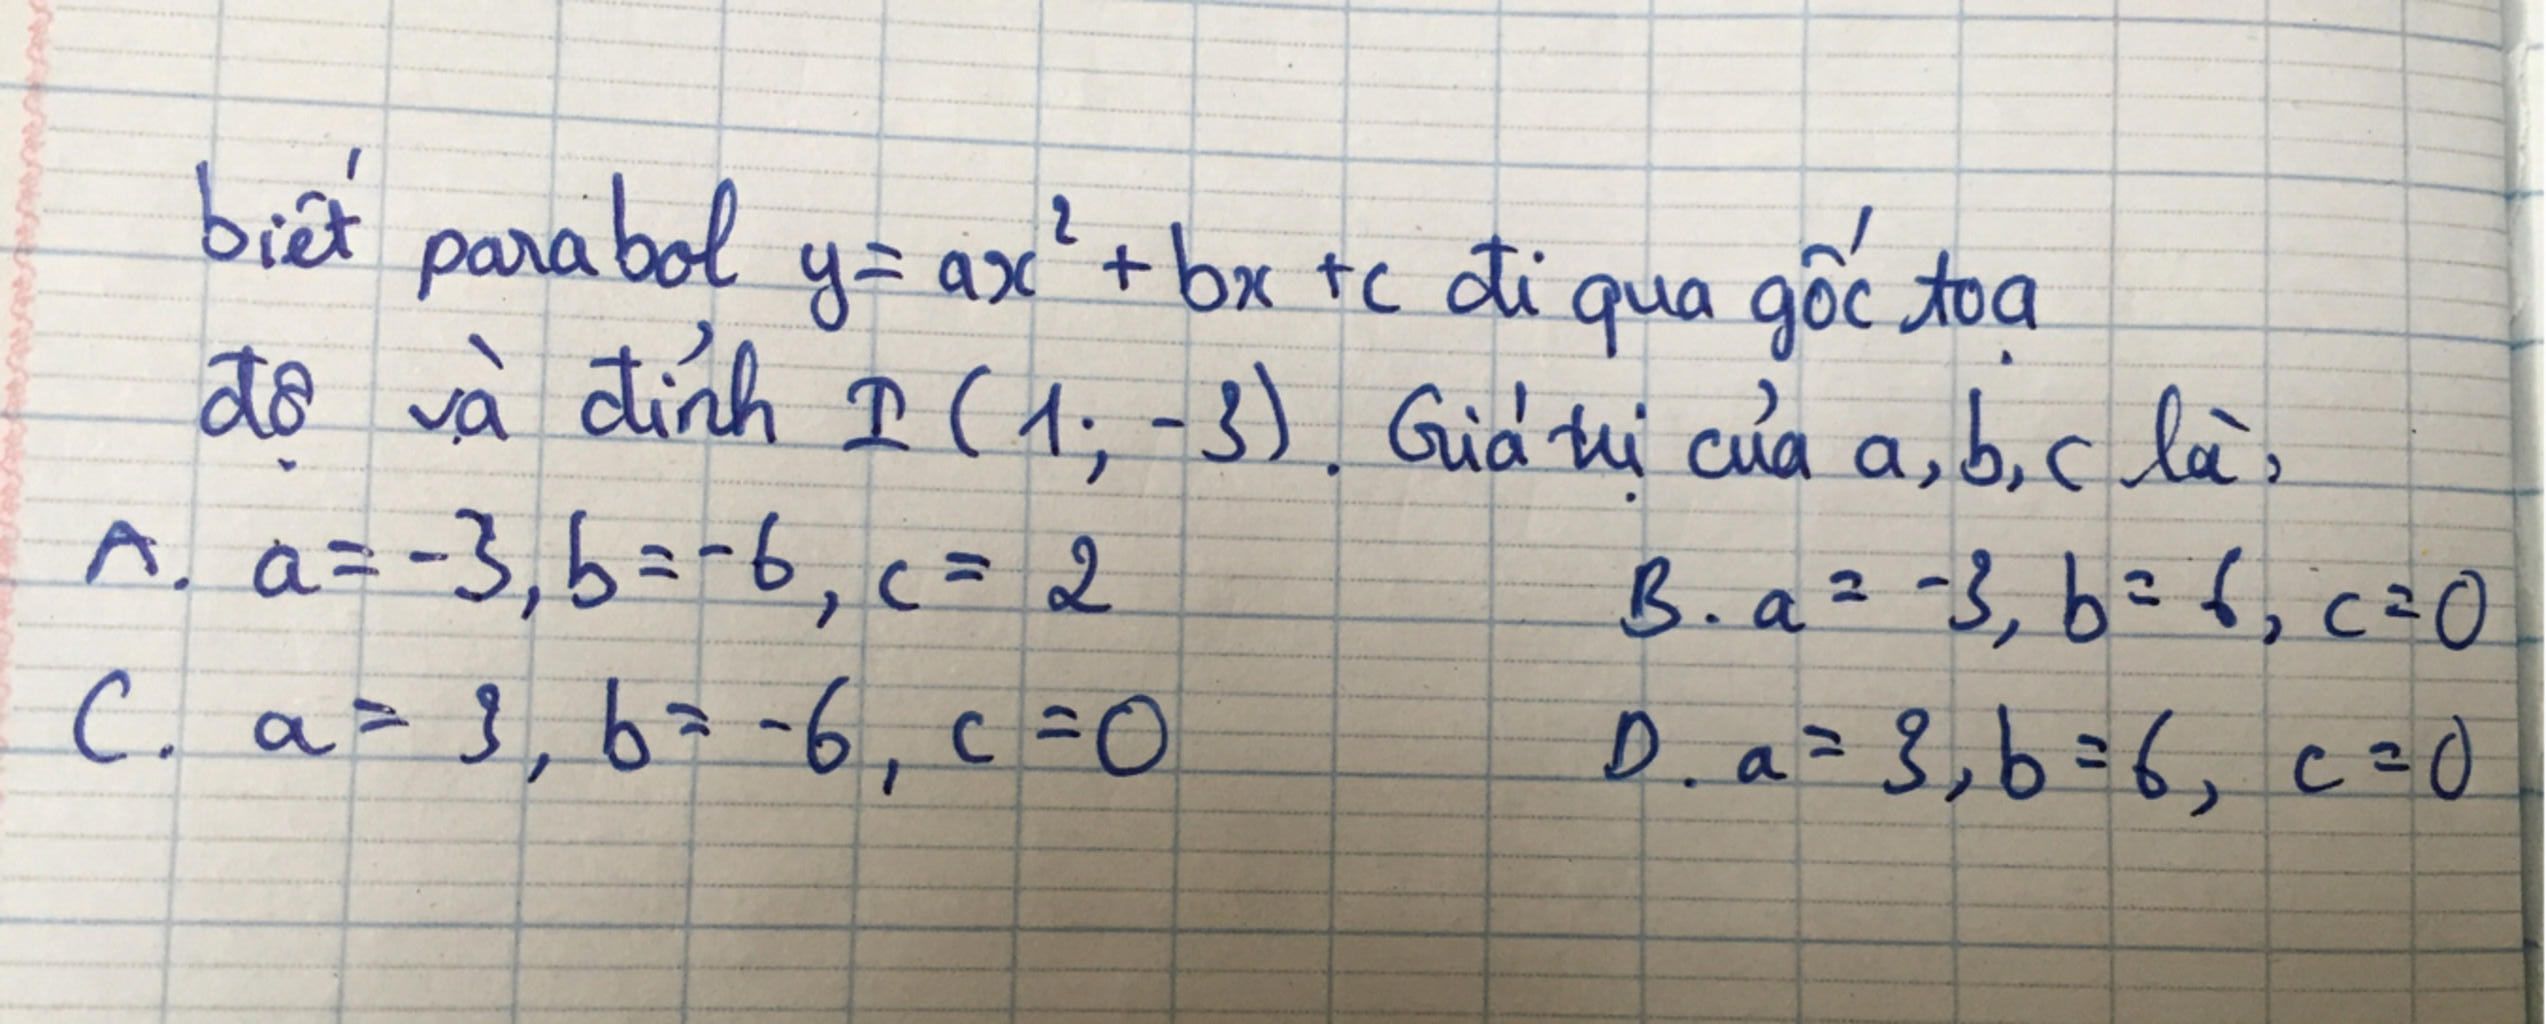 biết parabol y = ax² + bx + c đi qua gốc toạ
độ và đỉnh I (1; -3). Giá trị của a, b, c là,
A. a = -3, b = -6, c = 2
B. a = -3, b = 6, c = 0
C. a = 3, b = -6, c = 0
D. a = 3, b = 6, c = 0